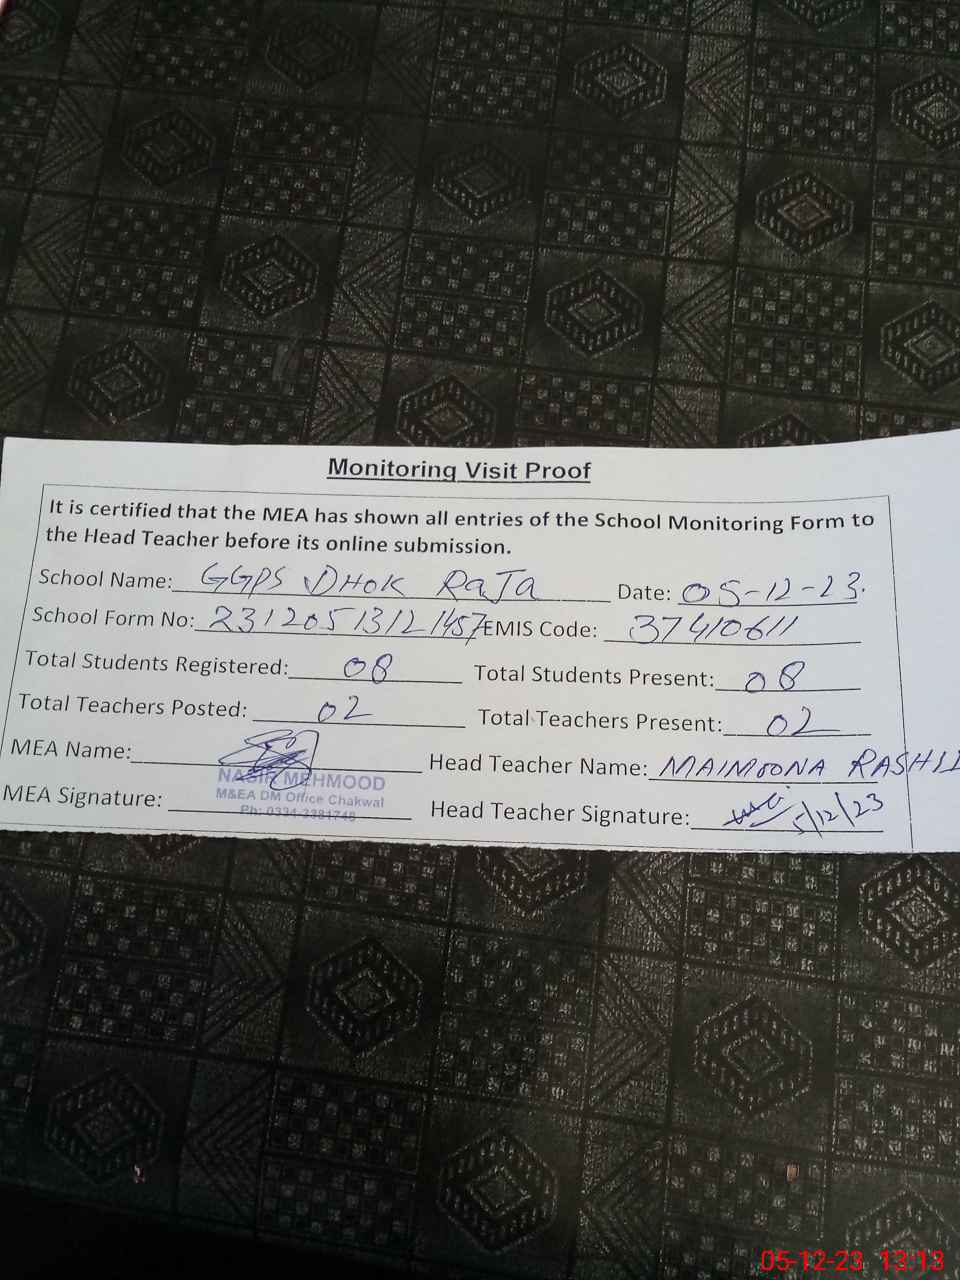 Monitoring Visit Proof
It is certified that the MEA has shown all entries of the School Monitoring Form to
the Head Teacher before its online submission.
School Name: GGPS DHOK RaJa Date: 05-12-23.
School Form No: 23120513121457 EMIS Code: 37410611
Total Students Registered: 08 Total Students Present: 08
Total Teachers Posted: 02 Total Teachers Present: 02
MEA Name: Head Teacher Name: MAIMOONA RASHID
NASIR MEHMOOD
M&EA DM Office Chakwal
Ph: 0334-3381748
MEA Signature: Head Teacher Signature: 5/12/23
05-12-23 13:13